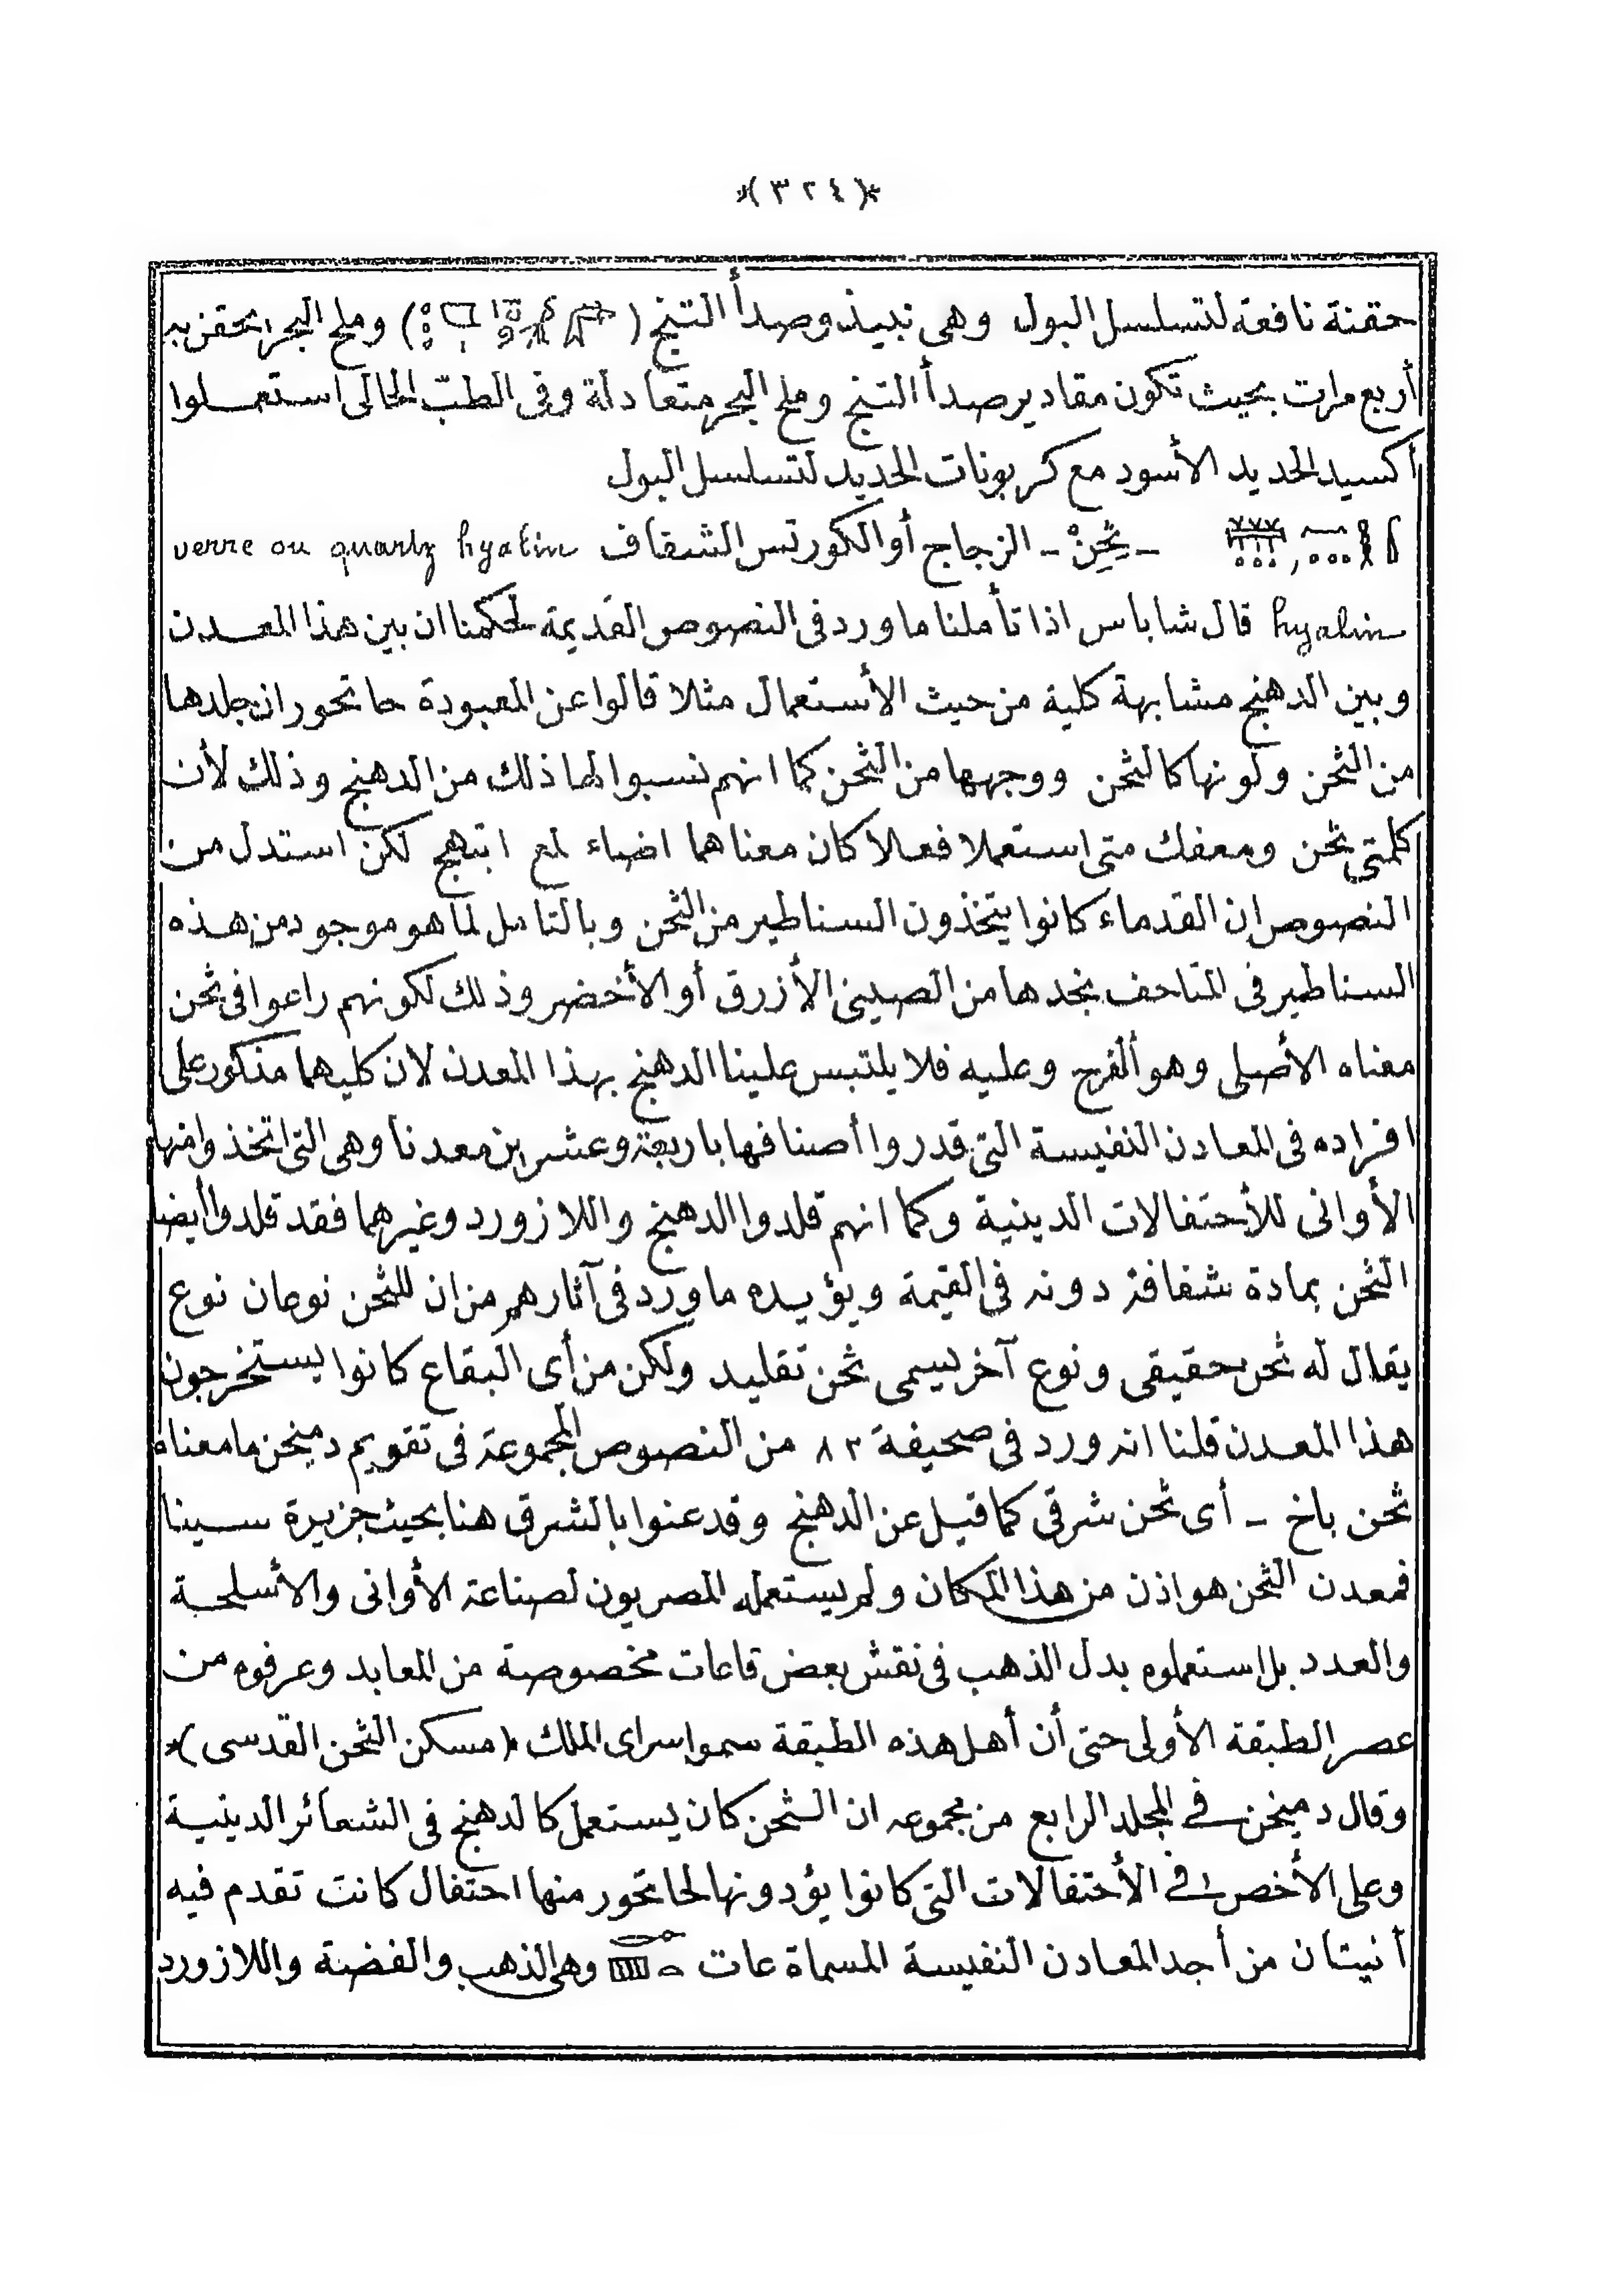 *(٣٢٤)*
حقنة نافعة لتسلسل البول وهى نبيذ وصدأ التنج ( ) وملح البحر يحقن به
أربع مرات بحيث تكون مقادير صدأ التنج وملح البحر متعادلة وفى الطب الحالى استعملوا
أكسيد الحديد الأسود مع كربونات الحديد لتسلسل البول
ـ ثَحِنْ ـ الزجاج أو الكورتس الشفاف verre ou quartz hyalin
hyalin قال شاباس اذا تأملنا ما ورد فى النصوص القديمة لحكمنا ان بين هذا المعدن
وبين الدهنج مشابهة كلية من حيث الأستعمال مثلا قالوا عن المعبودة حاتحور ان جلدها
من الثحن ولونها كالثحن ووجهها من الثحن كما انهم نسبوا لها ذلك من الدهنج وذلك لأن
كلمتى ثحن ومعفك متى استعملا فعلا كان معناهما اضاء لمع ابتهج لكن استدل من
النصوص ان القدماء كانوا يتخذون السناطير من الثحن وبالتامل لما هو موجود من هذه
السناطير فى المتاحف نجدها من الصينى الأزرق أو الأخضر وذلك لكونهم راعوا فى ثحن
معناه الأصلى وهو الفرح وعليه فلا يلتبس علينا الدهنج بهذا المعدن لان كليهما مذكور على
افراده فى المعادن النفيسة التى قدروا أصنافها باربعة وعشرين معدنا وهى التى اتخذوا منها
الأوانى للأحتفالات الدينية وكما انهم قلدوا الدهنج واللازورد وغيرهما فقد قلدوا أيضا
الثحن بمادة شفافة دونه فى القيمة ويؤيده ما ورد فى آثارهم من ان للثحن نوعان نوع
يقال له ثحن حقيقى ونوع آخر يسمى ثحن تقليد ولكن من أى البقاع كانوا يستخرجون
هذا المعدن قلنا انه ورد فى صحيفة ٨٢ من النصوص المجموعة فى تقويم دميخن ما معناه
ثحن باخ ـ أى ثحن شرقى كما قيل عن الدهنج وقد عنوا بالشرق هنا بحيث جزيرة سينا
فمعدن الثحن هو اذن من هذا المكان ولم يستعمله المصريون لصناعة الأوانى والأسلحة
والعدد بل استعملوه بدل الذهب فى نقش بعض قاعات مخصوصة من المعابد وعرفوه من
عصر الطبقة الأولى حتى أن أهل هذه الطبقة سموا سراى الملك *(مسكن الثحن القدسى)*
وقال دميخن فى المجلد الرابع من مجموعه ان الثحن كان يستعمل كالدهنج فى الشعائر الدينية
وعلى الأخص فى الأحتفالات التى كانوا يؤدونها لحاتحور منها احتفال كانت تقدم فيه
أنيتان من أجد المعادن النفيسة المسماة عات وهى الذهب والفضة واللازورد